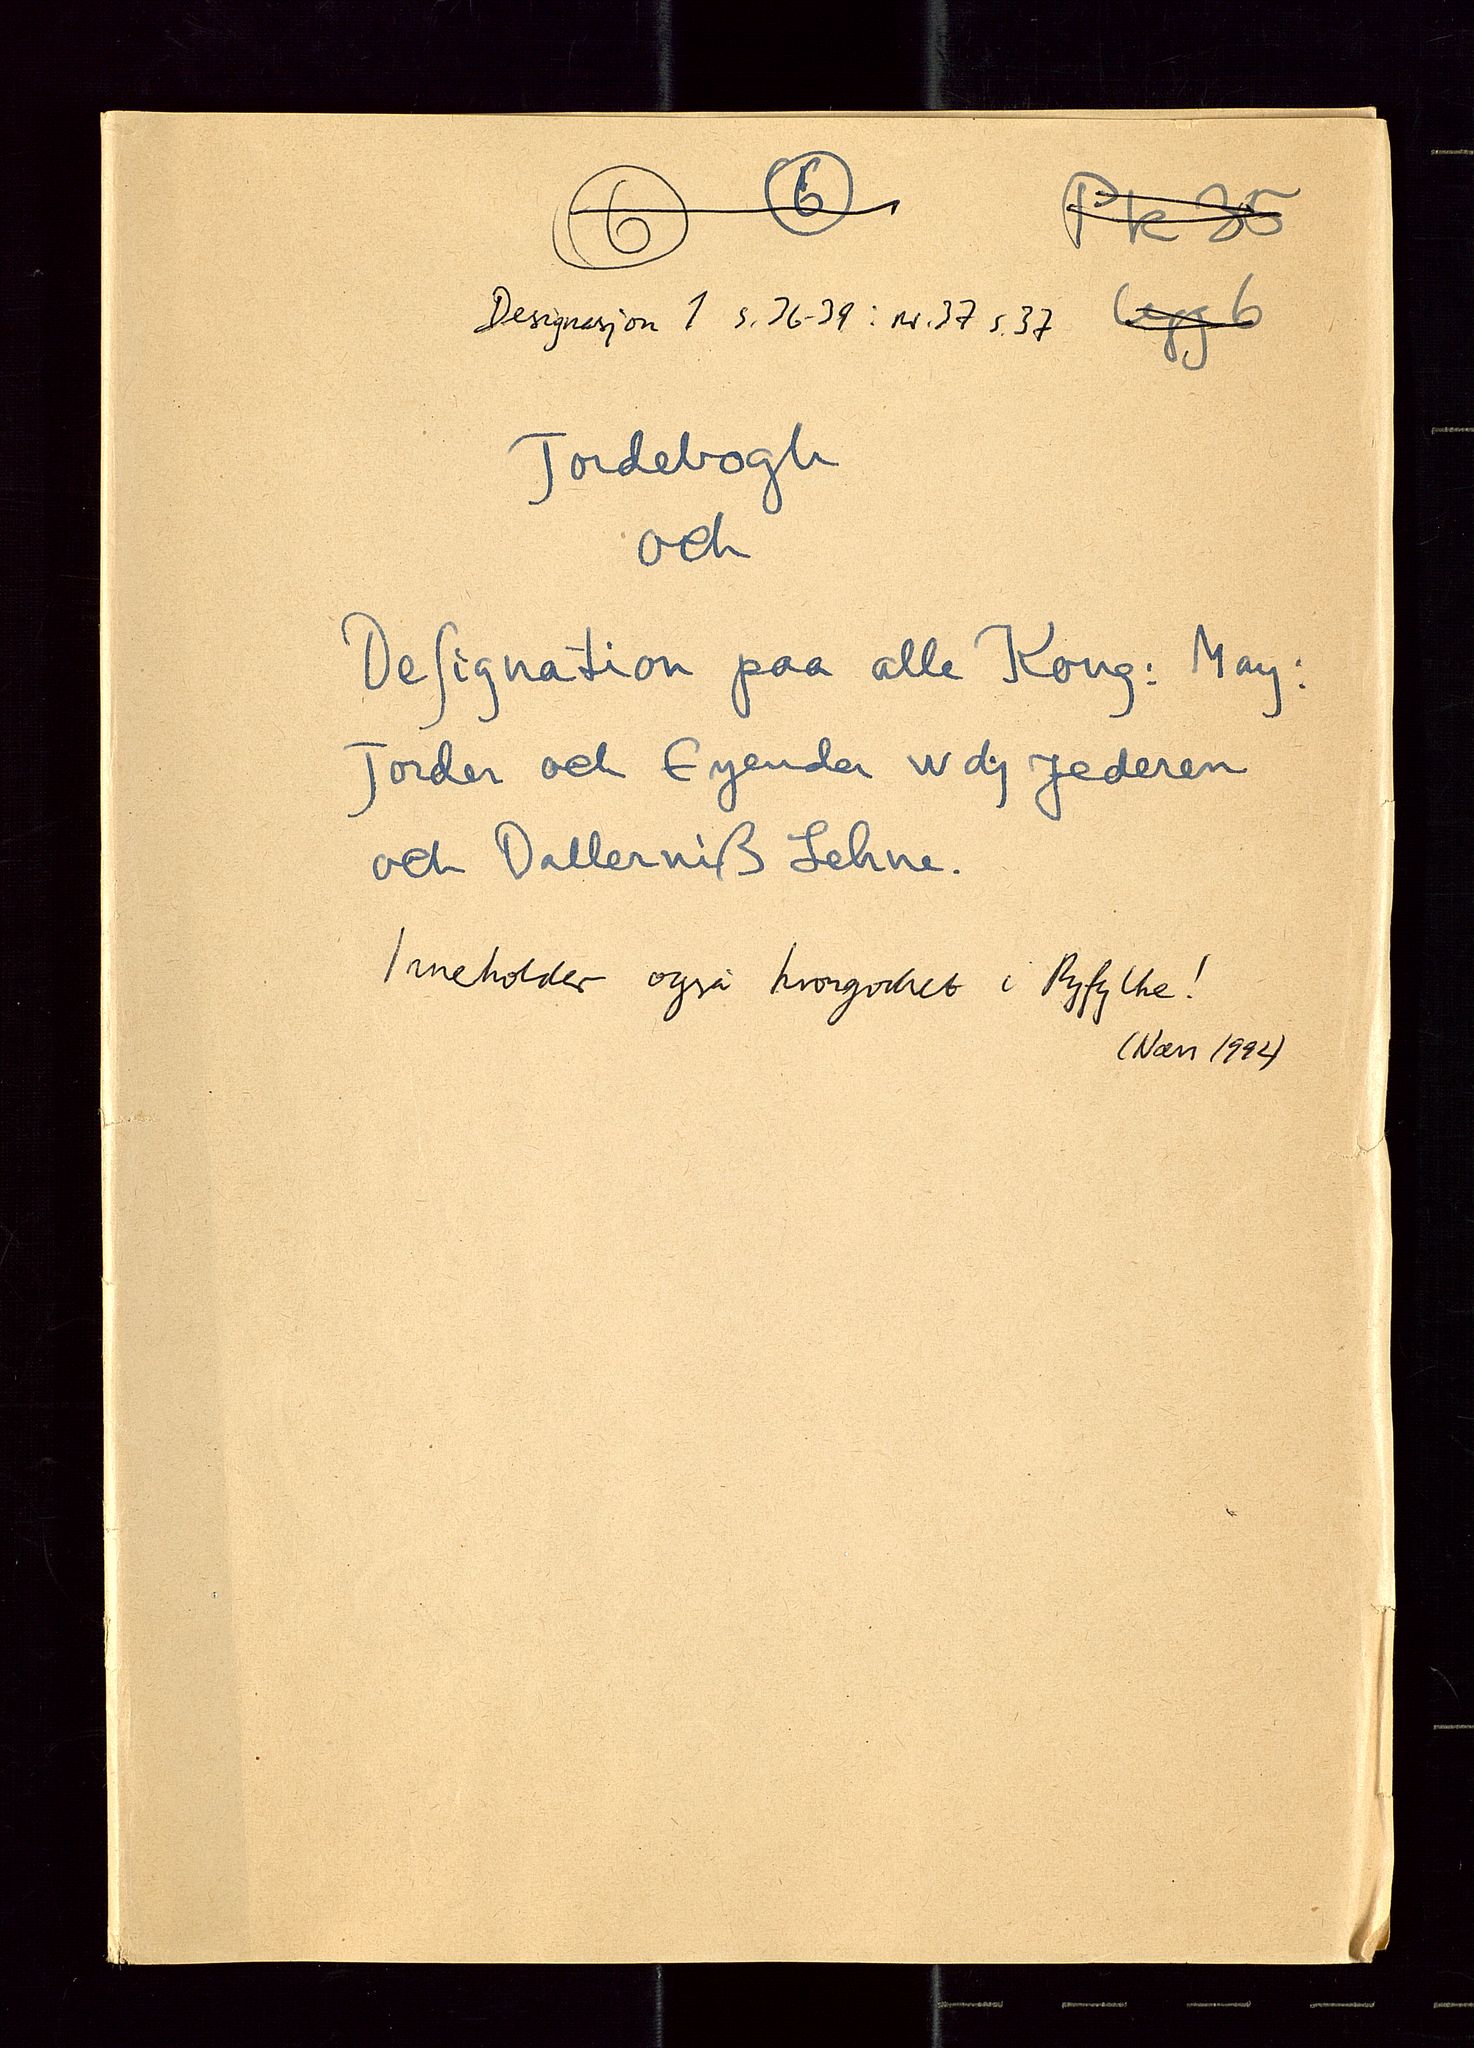 6 6 Pk 35
Designasjon 1 s. 36-39: nr. 37 s. 37 Legg 6
Jordebogh
och
Designation paa alle Kong: May:
Jorder och Eyender wdj Jederen
och Dallerniß Lehne.
Inneholder også krongodset i Ryfylke!
(Næss 1994)